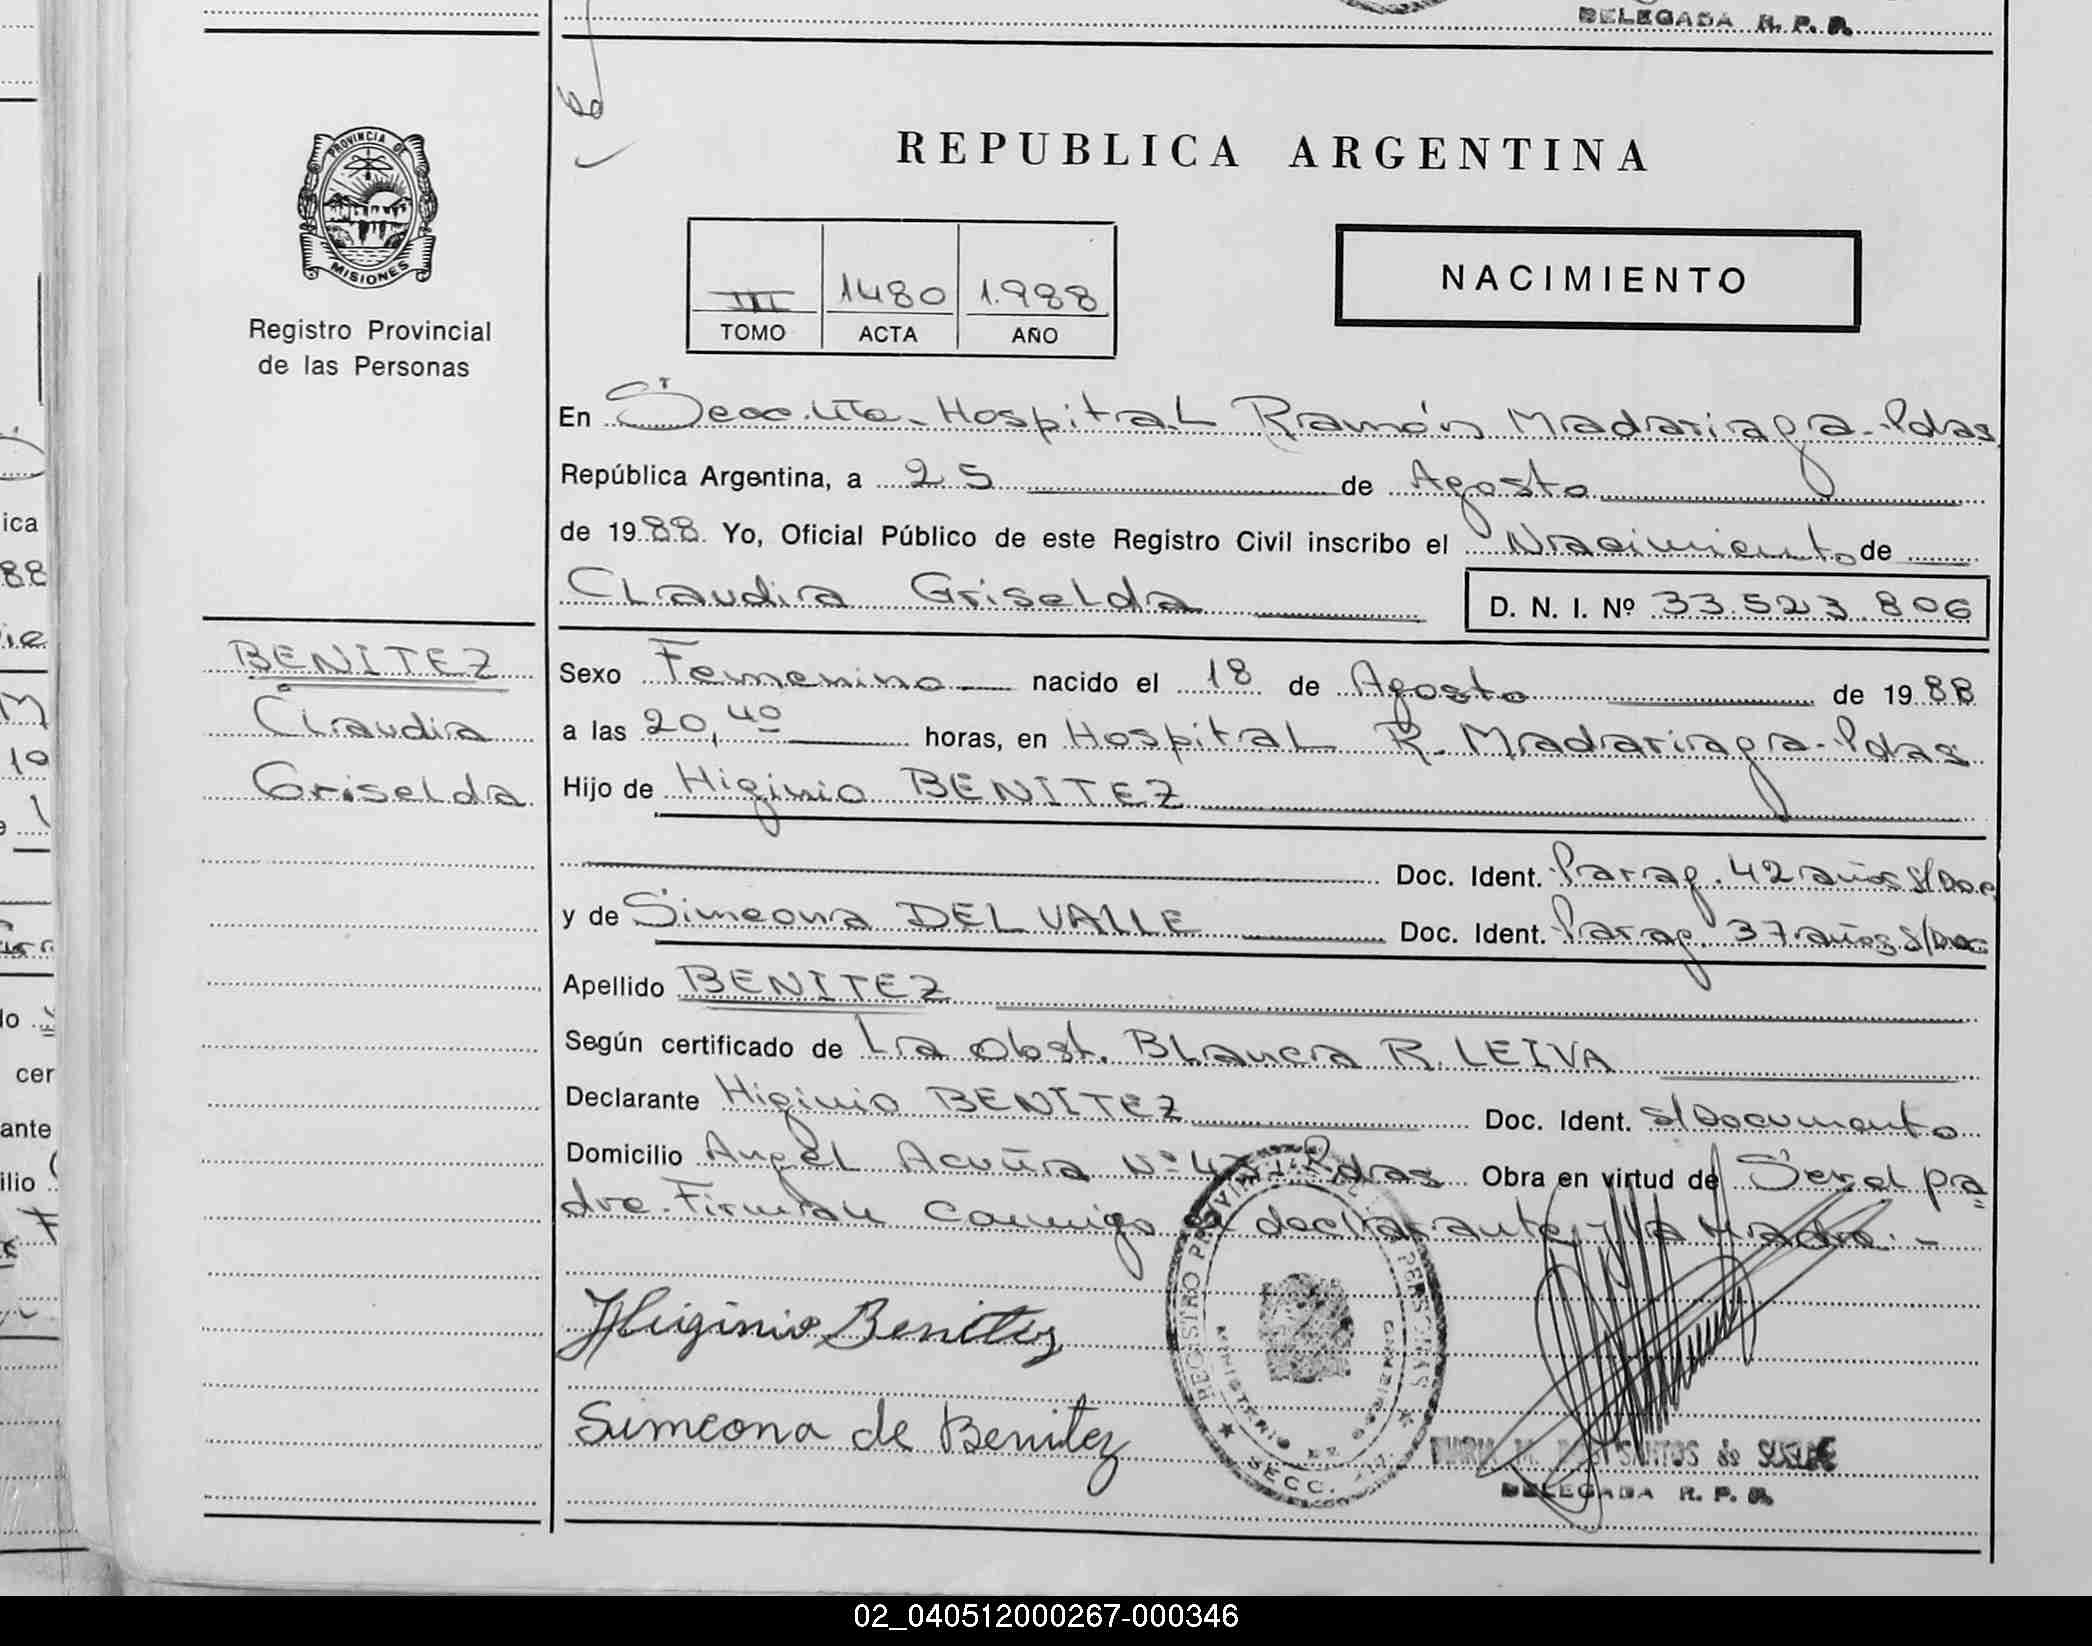 DELEGADA R. P. P.
PROVINCIA DE
MISIONES
Registro Provincial
de las Personas
REPUBLICA ARGENTINA
NACIMIENTO
III 1480 1.988
TOMO ACTA AÑO
En Secc. Hospital Ramón Madariaga - Pdas
República Argentina, a 25 de Agosto
de 1988. Yo, Oficial Público de este Registro Civil inscribo el Nacimiento de
Claudia Griselda D. N. I. Nº 33.523.806
BENITEZ
Claudia
Griselda
Sexo Femenino nacido el 18 de Agosto de 1988
a las 20,40 horas, en Hospital R. Madariaga - Pdas
Hijo de Higinio BENITEZ
Doc. Ident. Parag. 42 años S/Doc
y de Simeona DEL VALLE Doc. Ident. Parag. 37 años S/Doc
Apellido BENITEZ
Según certificado de La Obst. Blanca R. LEIVA
Declarante Higinio BENITEZ Doc. Ident. S/Documento
Domicilio Angel Acuña Nº Pdas Obra en virtud de Ser el pa
dre. Firman conmigo el declarante y la Madre. -
Higinio Benitez
Simeona de Benitez
REGISTRO PROVINCIAL DE PERSONAS
MINISTERIO DE GOBIERNO
SECC.
MARIA M. DOS SANTOS de
DELEGADA R. P. P.
02_040512000267-000346